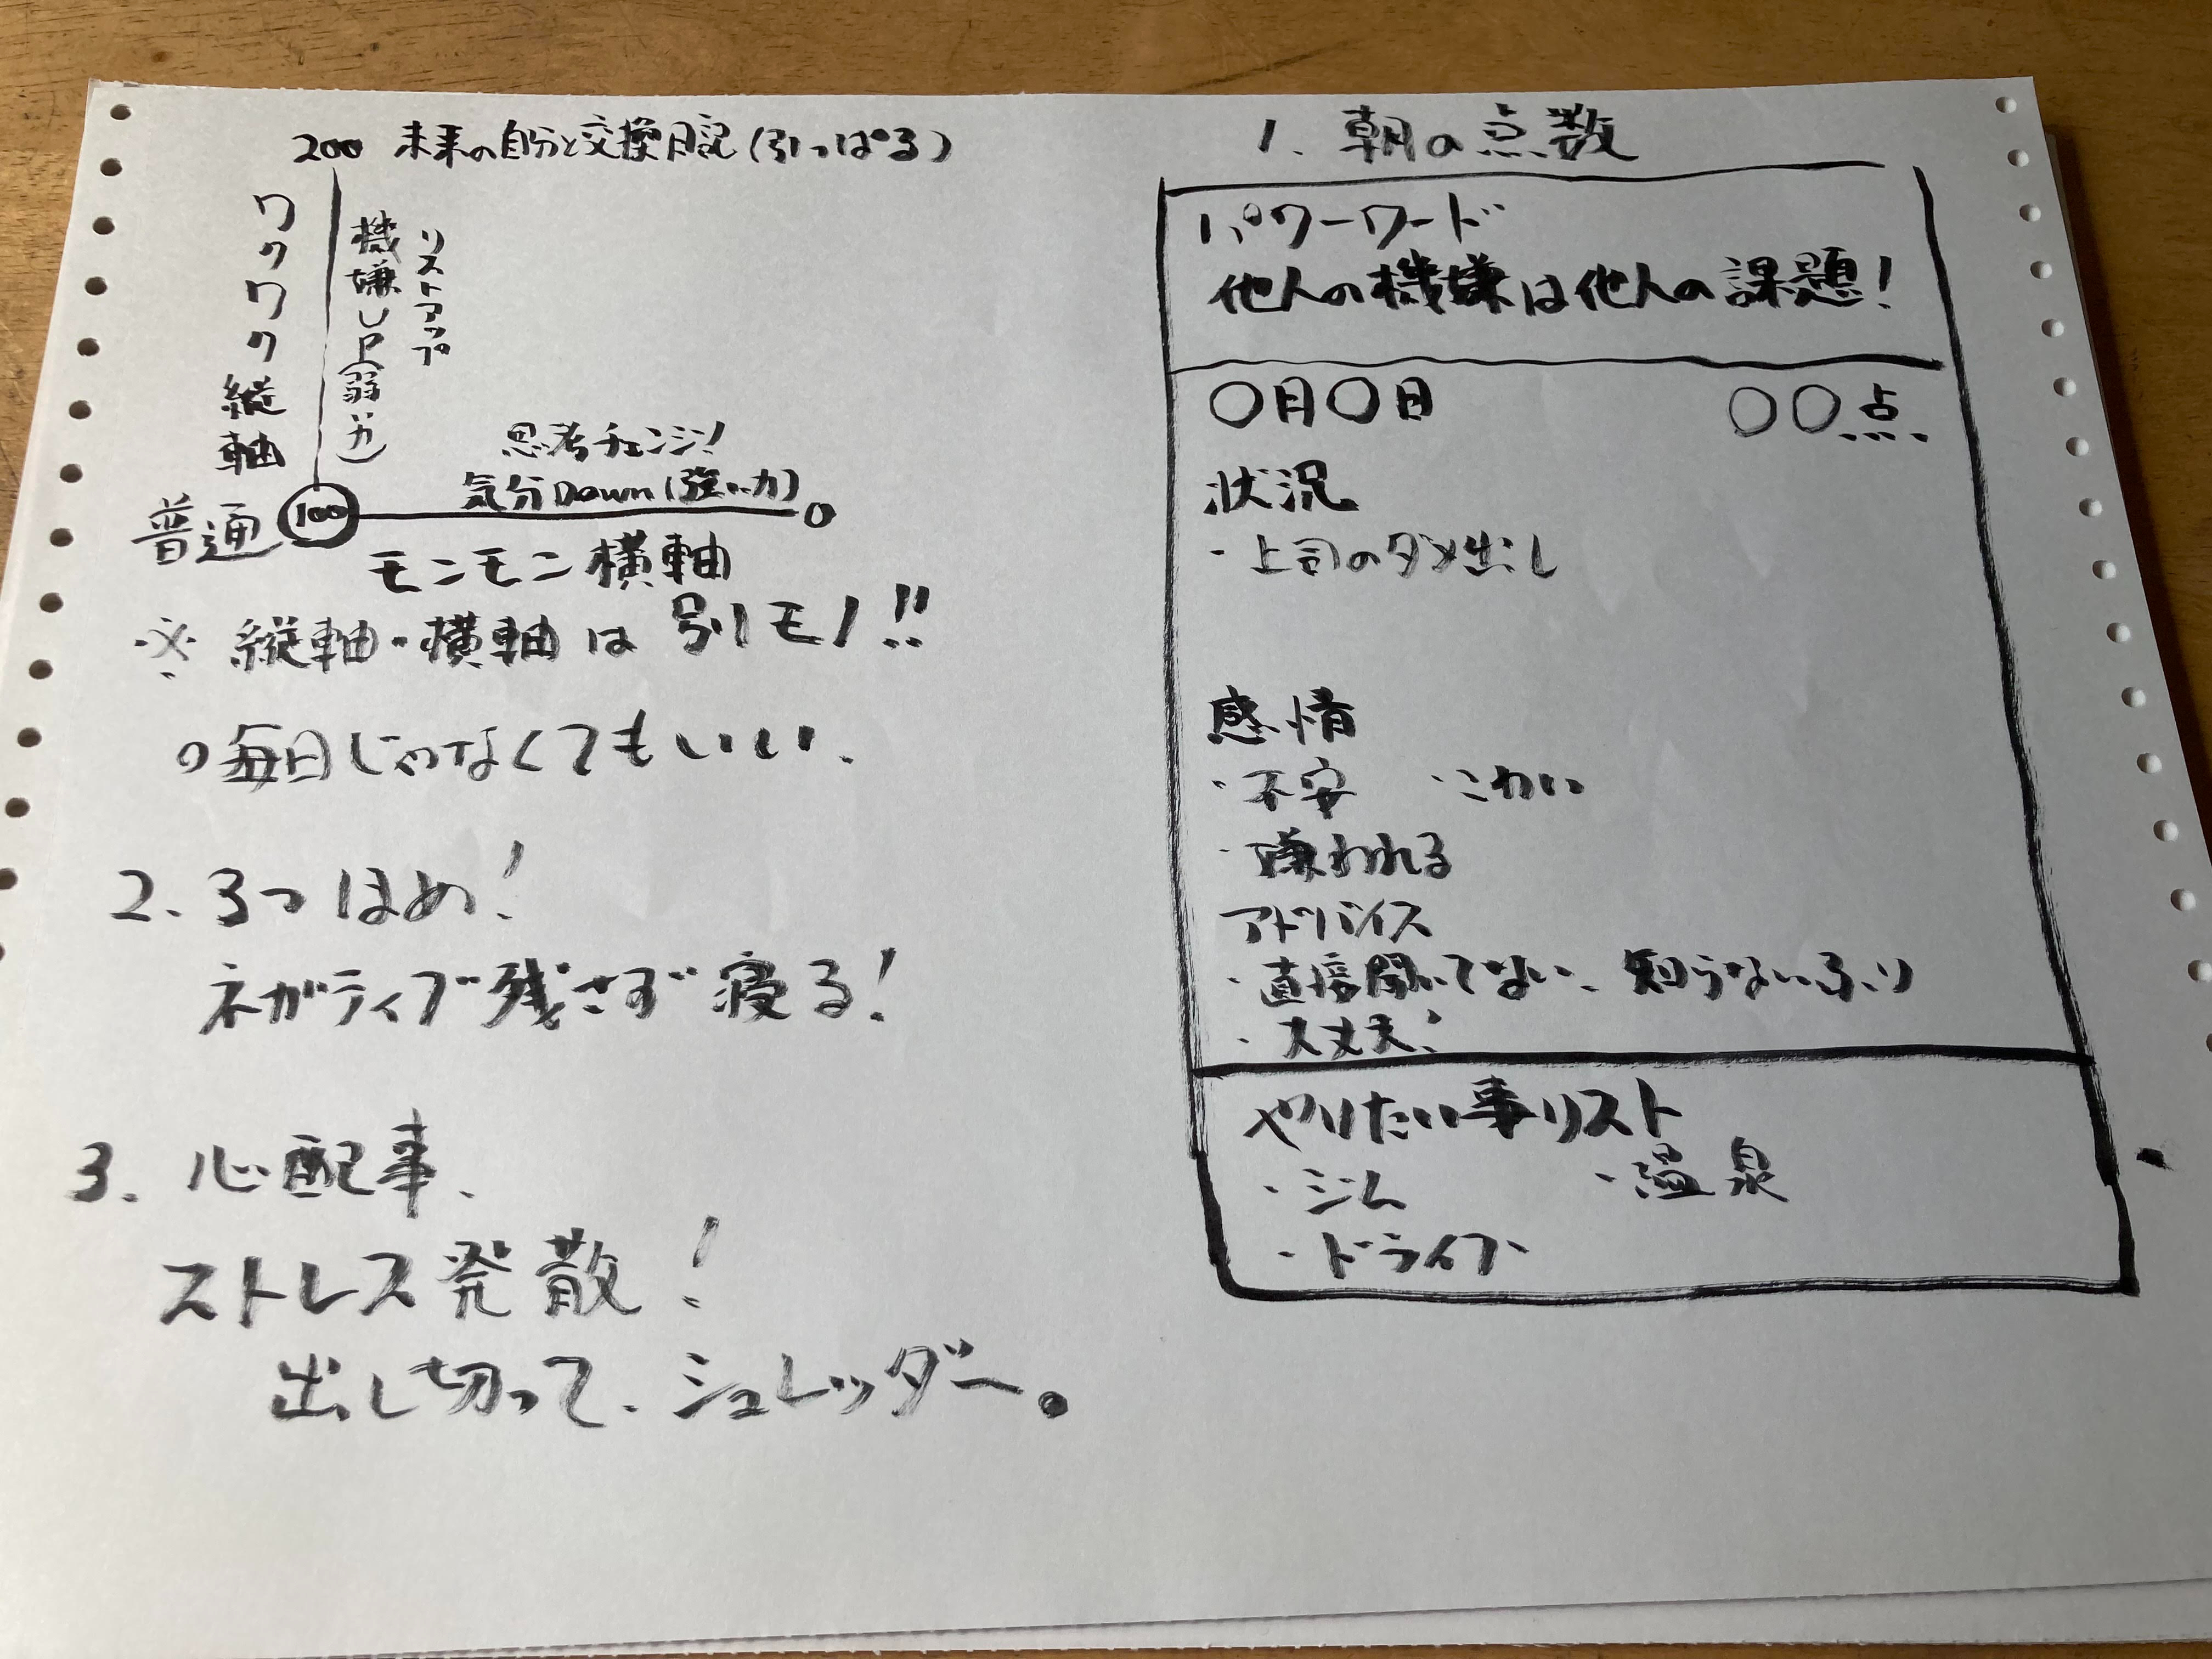 200 未来の自分と交換日記(引っぱる)
ワクワク縦軸
機嫌UP(弱い力)
リストアップ
思考チェンジ!
気分Down(強い力)
普通 100 0
モンモン横軸
※ 縦軸・横軸は別モノ!!
○毎日じゃなくてもいい、
2、3つほめ!
ネガティブ残さず寝る!
3、心配事、
ストレス発散!
出し切って、シュレッダー。
1、朝の点数
パワーワード
他人の機嫌は他人の課題!
○月○日 ○○点
状況
・上司のダメ出し
感情
・不安 ・こわい
・嫌われる
アドバイス
・直接聞いてない、知らないふり
・大丈夫!
やりたい事リスト
・ジム ・温泉
・ドライブ